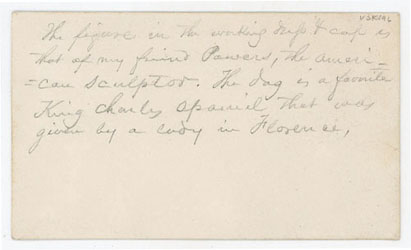 The figure in the working & cap is
that of my friend Powers, the Ameri-
=can sculptor. The dog is a favorite
King Charles Spaniel that was
given by a lady in Florence,